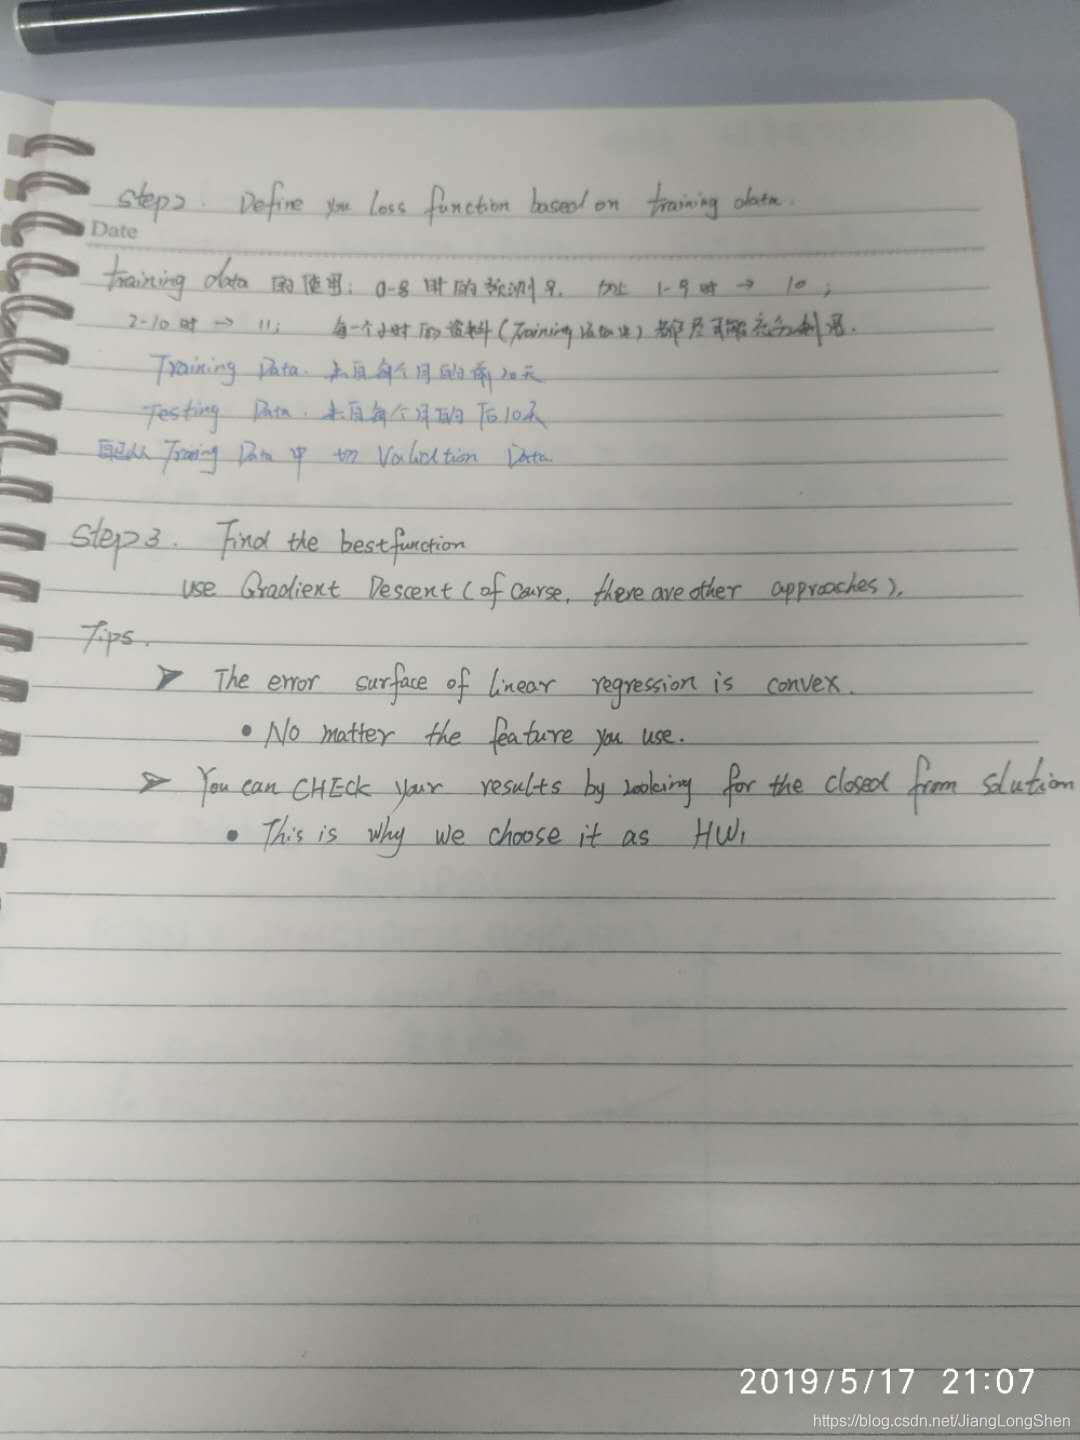 Step2. Define you loss function based on training data.
Date
training data 的使用: 0-8 时的预测 9. 如此 1-9 时 → 10 ;
2-10 时 → 11; 每一个小时的资料 (Training data) 都尽可能充分利用.
Training Data. 来自每个月的前20天
Testing Data. 来自每个月的后10天
自己从 Traing Data 中 切 Validation Data.
Step3. Find the best function
use Gradient Descent (of course, there are other approaches).
Tips.
➢ The error surface of linear regression is convex.
• No matter the feature you use.
➢ You can CHEck your results by looking for the closed from solution
• This is why we choose it as HW1
2019/5/17 21:07
https://blog.csdn.net/JiangLongShen